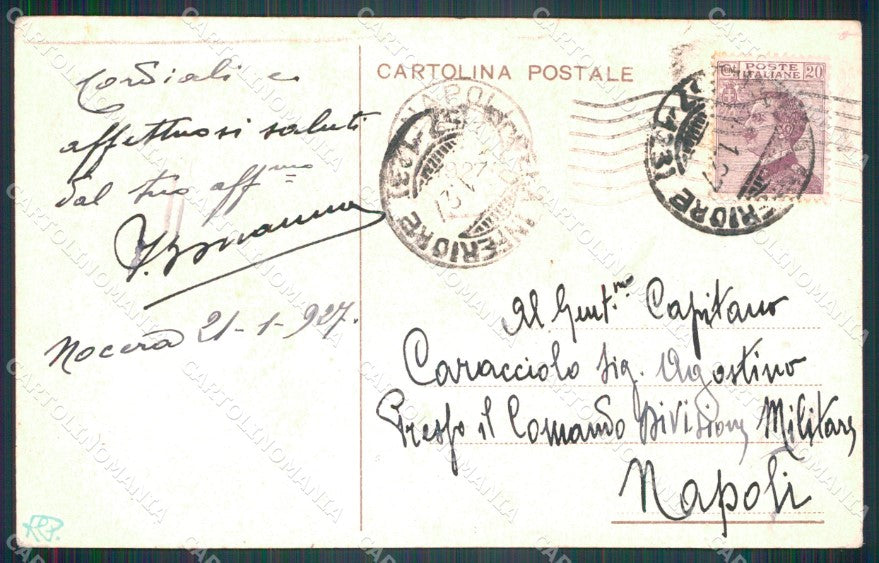 CARTOLINA POSTALE
POSTE
ITALIANE 20
Cordiali e
affettuosi saluti
dal tuo aff.mo
Nocera 21-1-927.
Al Gent.mo Capitano
Caracciolo Sig. Agostino
Presso il Comando Divisione Militare
Napoli
CARTOLINOMANIA